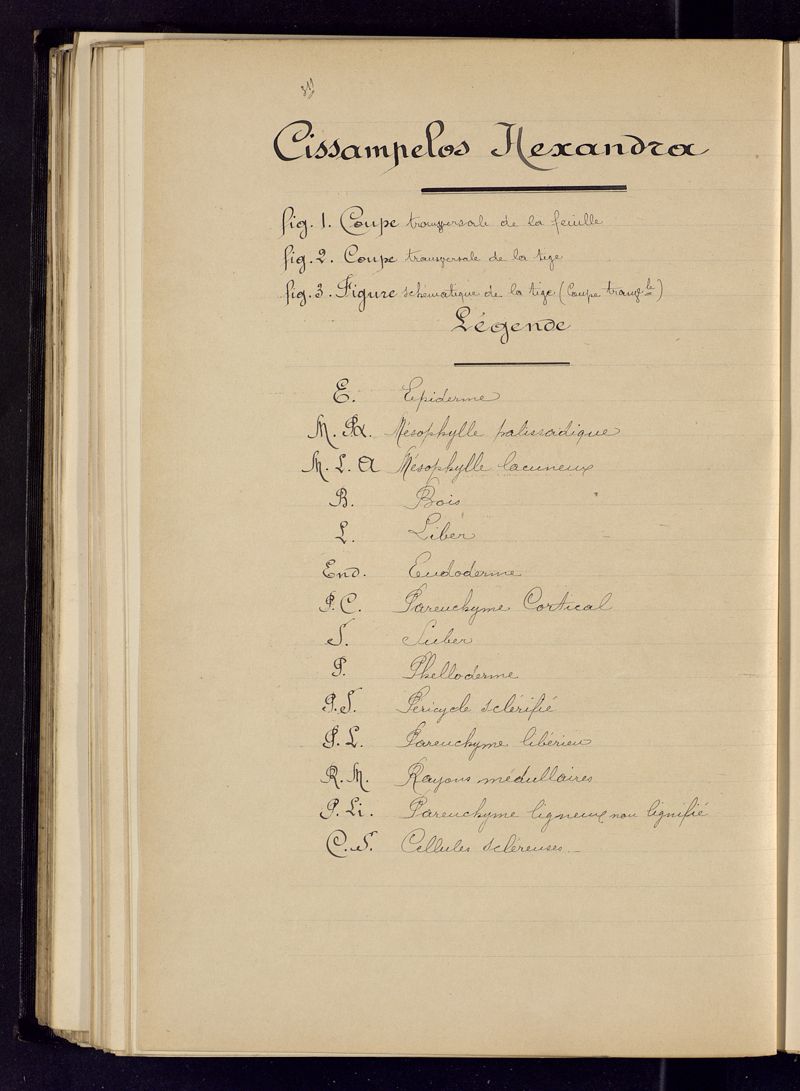 Cissampelos Hexandra
fig. 1. Coupe transversale de la feuille
fig. 2. Coupe transversale de la tige
fig. 3. Figure schématique de la tige (Coupe transv.le)
Légende
E. Epiderme
M. Pa. Mésophylle palissadique
M. La Mésophylle lacuneux
B. Bois
L. Liber
End. Endoderme
P.C. Parenchyme Cortical
S. Suber
P. Phelloderme
P.S. Péricycle sclérifié
P.L. Parenchyme libérien
R.M. Rayons médullaires
P.Li. Parenchyme ligneux non lignifié
C.S. Cellules scléreuses